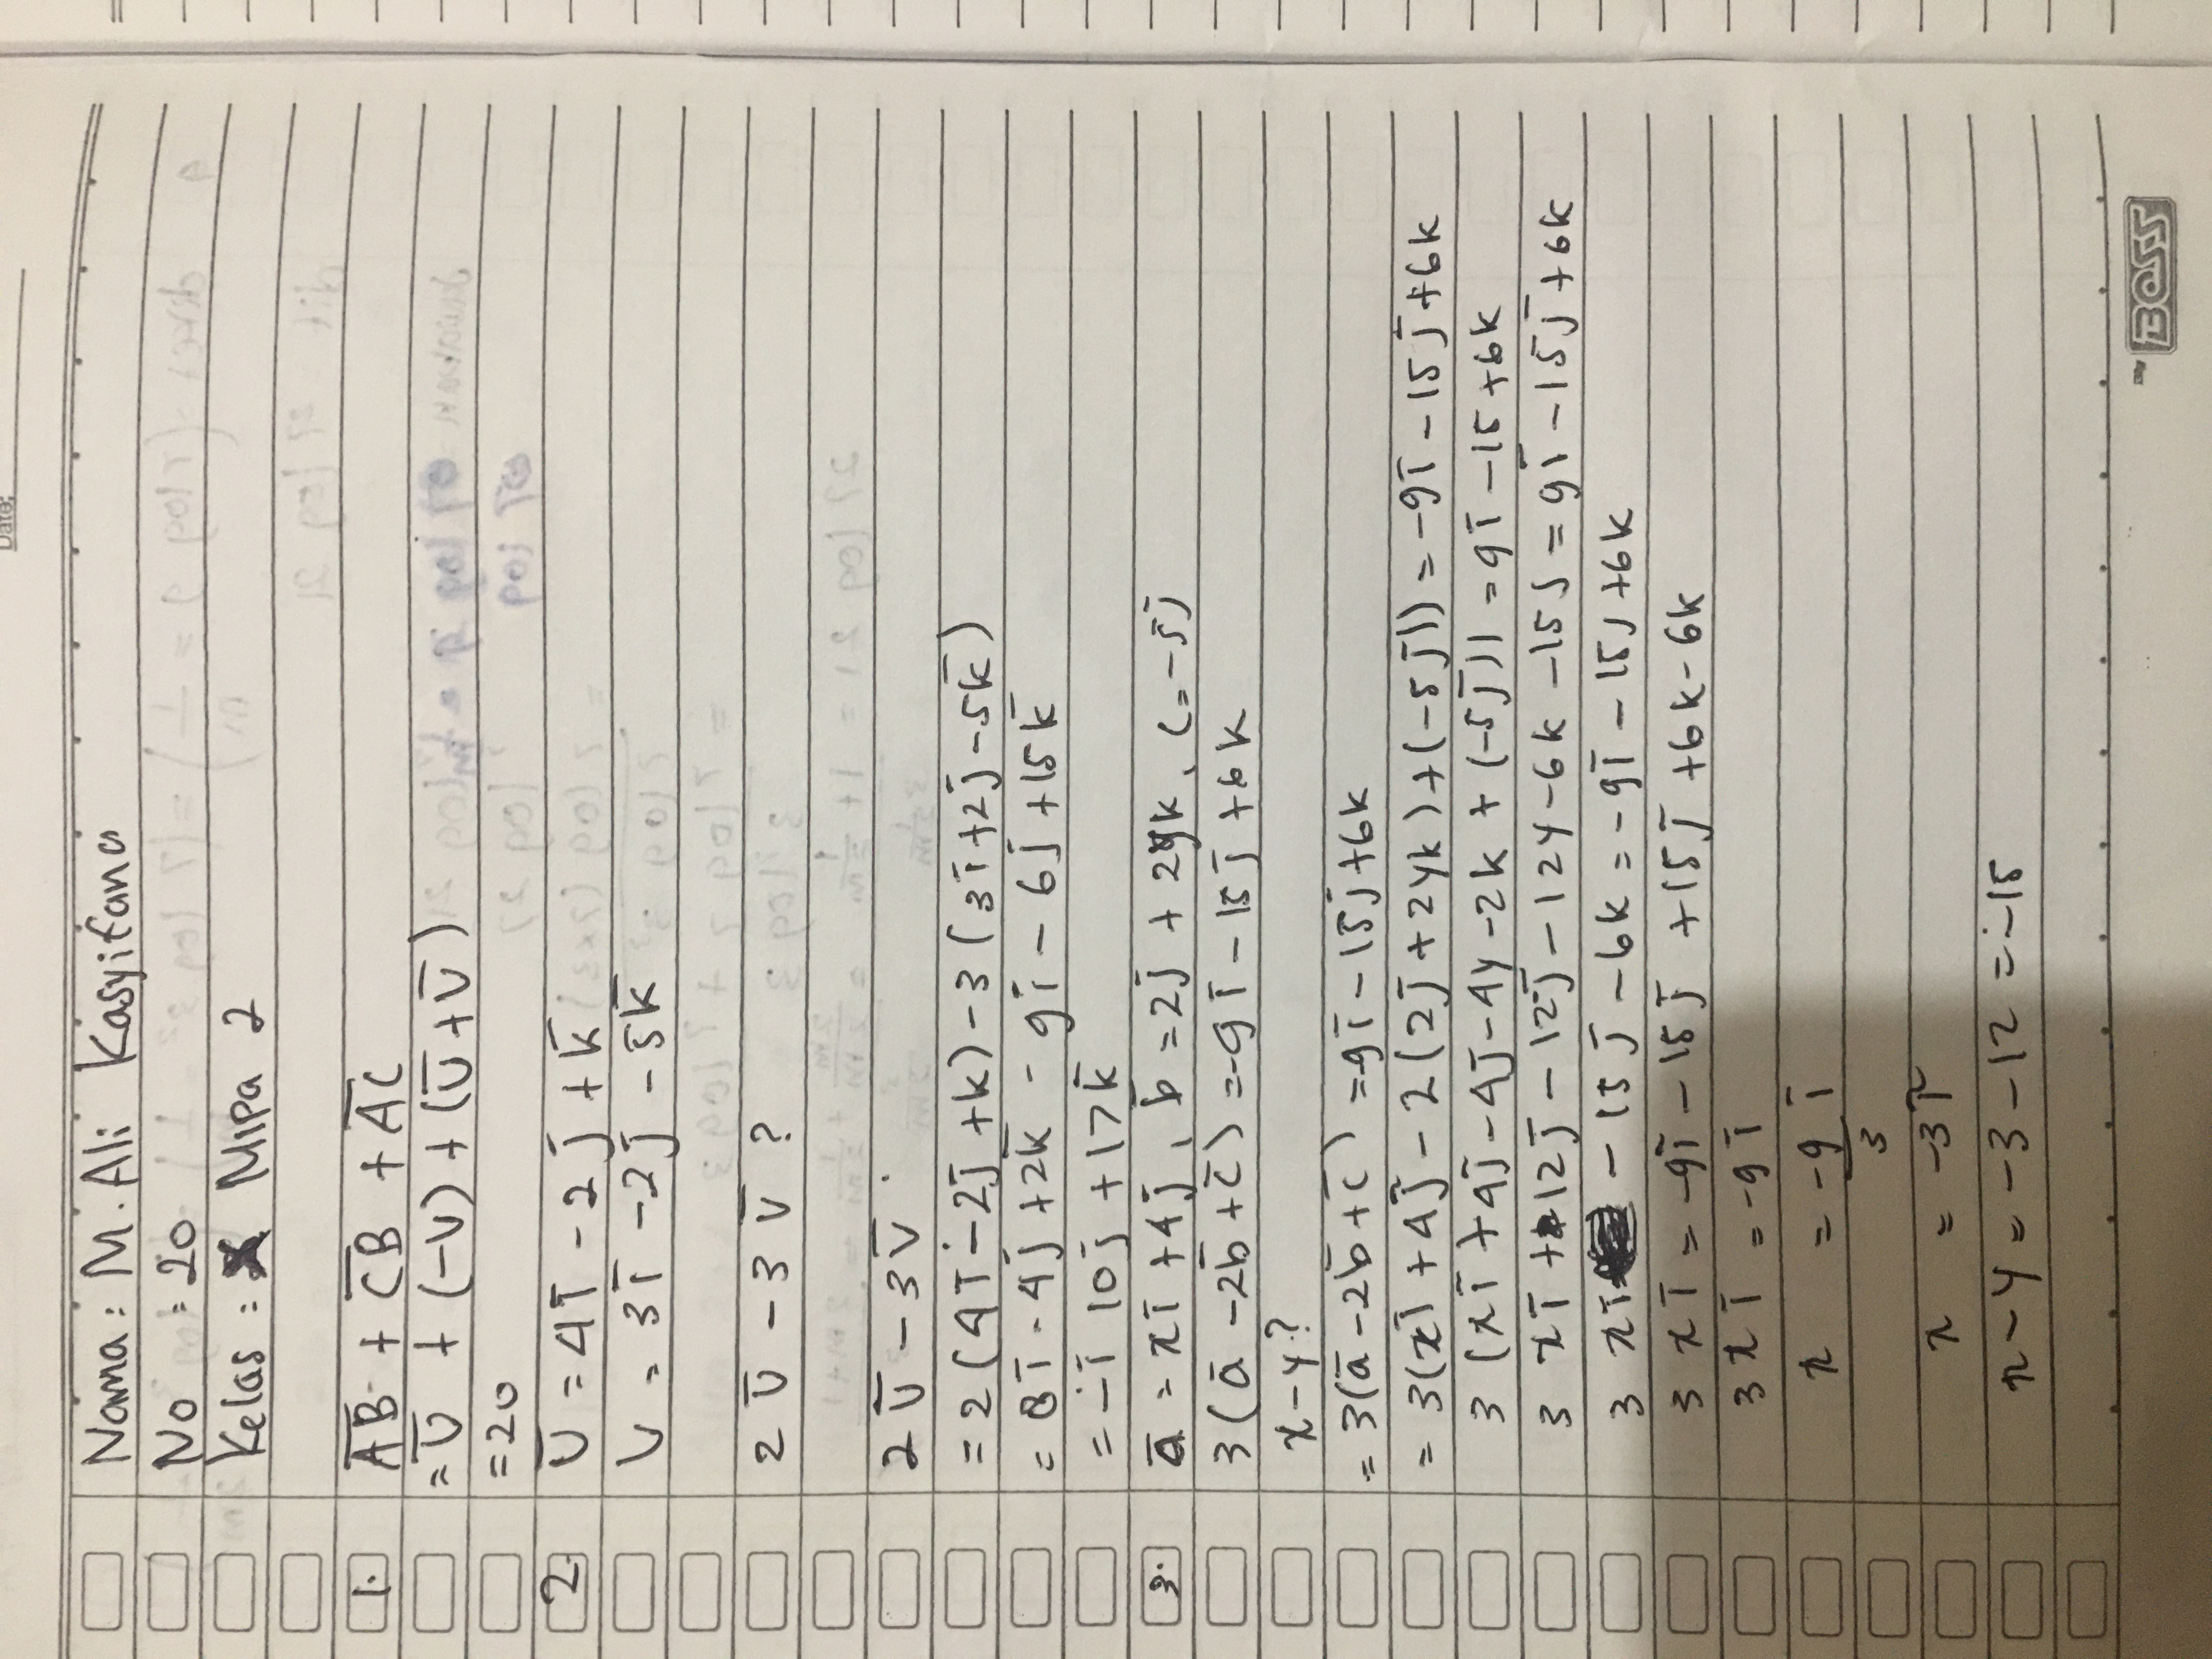 Date:
Nama : M. Ali Kasyifana
No : 20
Kelas : X Mipa 2
1. A̅B̅ + C̅B + A̅C
= U̅ + (-V) + (U̅ + V̅)
= 20
2. U̅ = 4i̅ - 2j̅ + k̅
V = 3i̅ - 2j̅ - 5k̅
2 U̅ - 3 V̅ ?
2 U̅ - 3 V̅
= 2 (4i̅ - 2j̅ + k) - 3 (3i̅ + 2j̅ - 5k̅)
= 8i̅ - 4j̅ + 2k̅ - 9i̅ - 6j̅ + 15k̅
= -i̅ 10j̅ + 17k̅
3. a̅ = xi̅ + 4j̅, b̅ = 2j̅ + 2yk, c = -5j̅
3(a̅ - 2b̅ + c̅) = -9i̅ - 15j̅ + 6k
x - y ?
= 3(a̅ - 2b̅ + c̅) = -9i̅ - 15j̅ + 6k
= 3(xi̅ + 4j̅ - 2 (2j̅ + 2yk) + (-5j̅)) = -9i̅ - 15j̅ + 6k
3 (xi̅ + 4j̅ - 4j̅ - 4y - 2k + (-5j̅)) = 9i̅ - 15 + 6k
3 xi̅ + 12j̅ - 12j̅ - 12y - 6k - 15j = 9i̅ - 15j̅ + 6k
3 xi̅ - 15j̅ - 6k = -9i̅ - 15j + 6k
3 xi̅ = -9i̅ - 15j̅ + 15j̅ + 6k - 6k
3xi̅ = -9i̅
x = -9 i̅
3
x = -3i̅
x - y = -3 - 12 = -15
BOSS